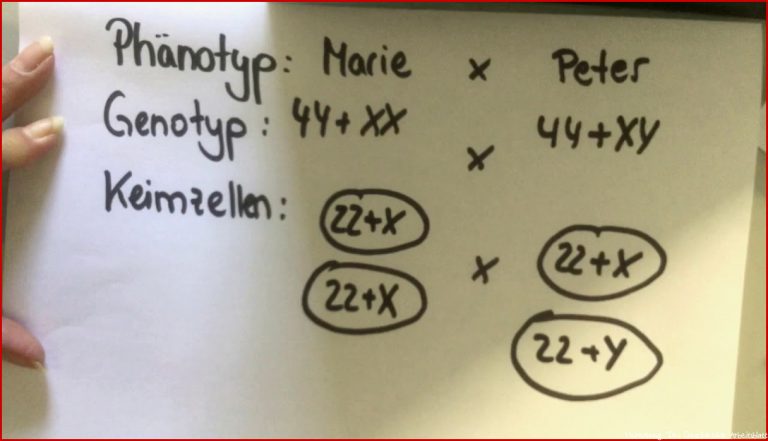 Phänotyp: Marie x Peter
Genotyp: 44+XX x 44+XY
Keimzellen:
22+X x 22+X
22+X 22+Y
Arbeitsblatt